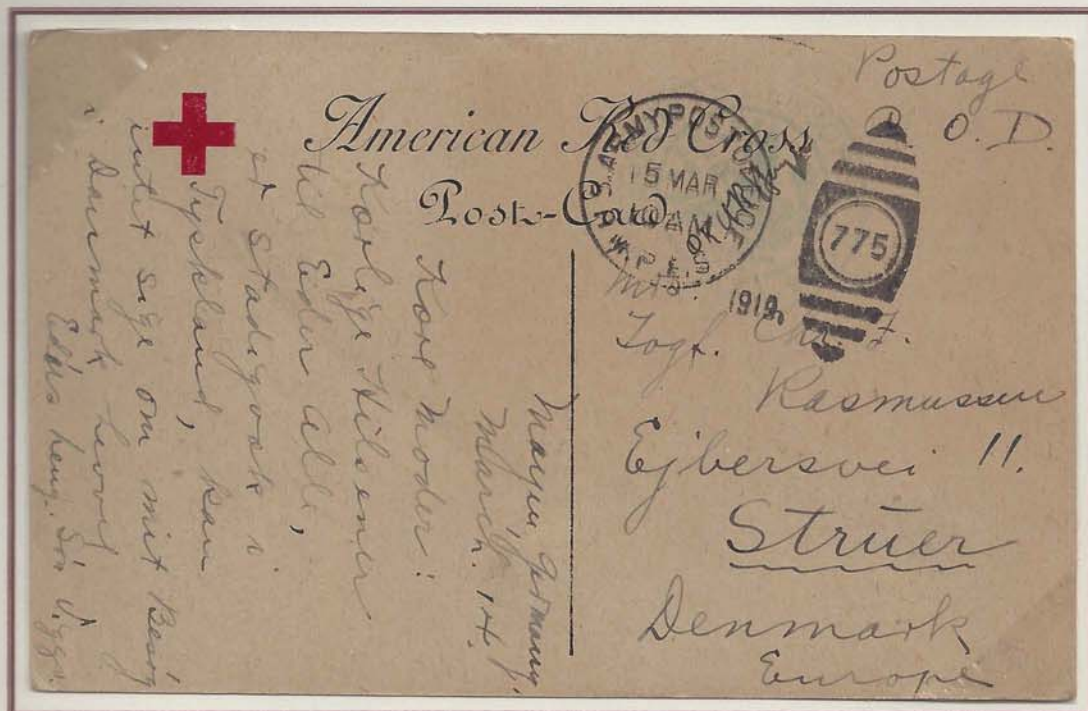 Postage
P. O. D.
American Red Cross
Post-Card
U.S. ARMY POST OFFICE
15 MAR
AM
M.P.E.S.
1919
775
Mrs.
Togf. Chr. F.
Rasmussen
Ejbersvei 11.
Struer
Denmark
Europe
Mayen, Germany,
March. 14.
Kære Moder!
Kærlige Hilsener
til Eder Alle,
er stadigvæk i
Tyskland, kan
intet sige om mit Besøg
i Danmark
Eders heng. Søn Viggo.